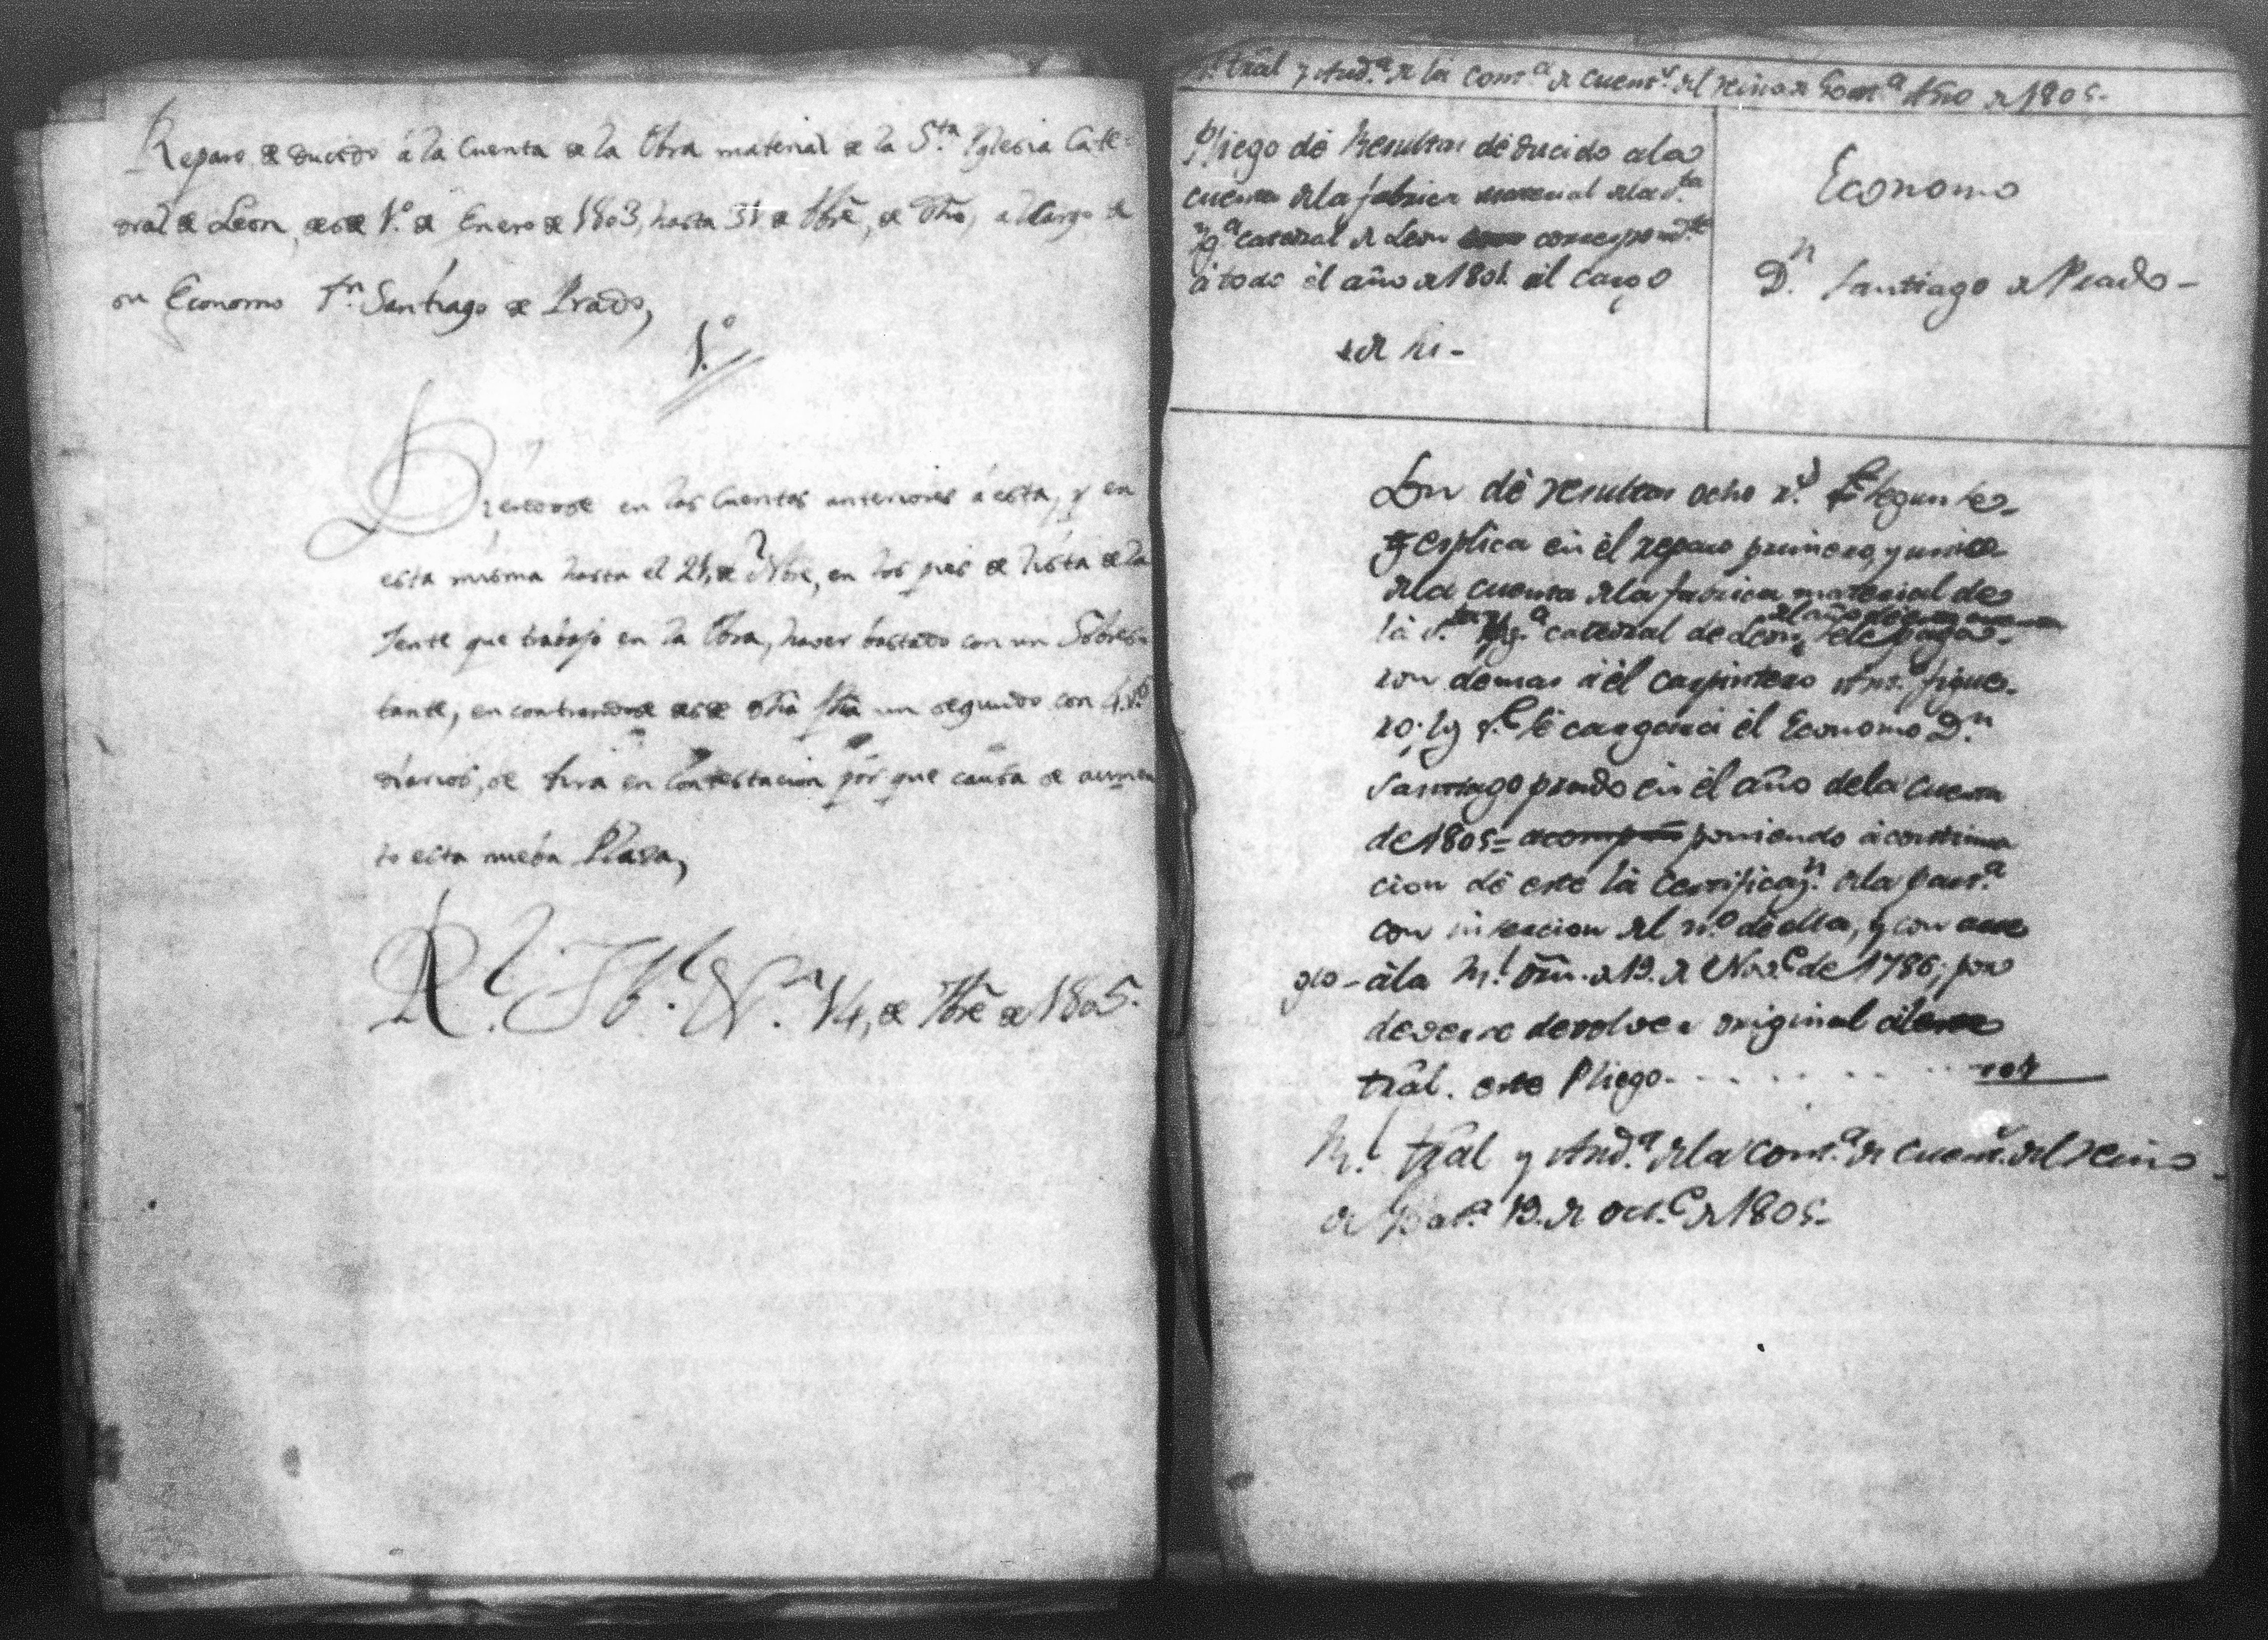 Reparo deducido á la Cuenta de la Obra material de la S.ta Yglesia Cate-
dral de Leon, desde 1.º de Enero de 1803, hasta 31 de Xbrẽ, de dho, al Cargo de
su Economo Dn. Santiago de Prado,
1.º
Viendose en las Cuentas anteriores á esta, y en
esta misma hasta el 21, de Nbre, en los pies de lista de la
Jente que trabajó en la Obra, haver bastado con un Sobres-
tante, encontrandose desde dha fha un segundo con 4 r.s
diarios, se dira en Contestacion por que causa se aumen
to esta nueba Plaza,
R.l Tbl. 14, de Xbrẽ de 1805.
R.l trãl y Aud.a de la cont.a de cuent.s del reino de Goat.a Año de 1805-
Pliego de Resultas deducido a la
cuenta de la fabrica material de la S.ta
Yg.a catedral de Leon correspond.te
á todo el año de 1804 al cargo
de su-
Economo
D.n Santiago de Prado-
Son de resultas ocho r.s q.e segun se
explica en el reparo primero, y unico
de la cuenta de la fabrica material de
la S.ta Yg.a catedral de Leon, se le paga-
del año de
ron demas á el carpintero Ant.o Figue-
ro; los q.e se cargará el Economo D.n
Santiago prado en el año de la cuenta
de 1805= poniendo á continua
cion de este la Certificaz.n de la part.a
con insercion del n.o de ella, y con arre
glo- á la R.l orñ. de 19. de Nov.e de 1786; por
deverse devolver original á este
trãl. este Pliego- . . . . . . . .
R.l trãl y Aud.a de la cont.a de cuent.s del reino
de Goat.a 19. de oct.e de 1805-